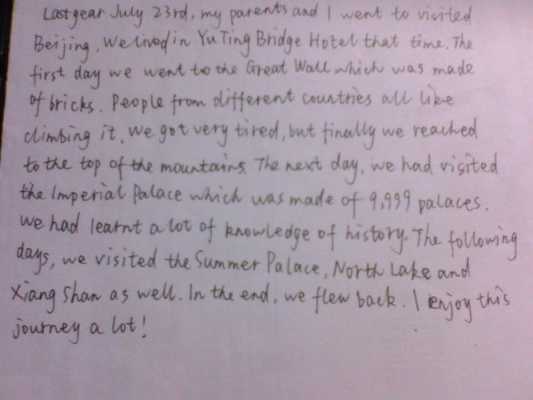 Last year July 23rd, my parents and I went to visited
Beijing. We lived in YuTing Bridge Hotel that time. The
first day we went to the Great Wall which was made
of bricks. People from different countries all like
climbing it, we got very tired, but finally we reached
to the top of the mountains. The next day, we had visited
the Imperial Palace which was made of 9,999 palaces.
we had learnt a lot of knowledge of history. The following
days, we visited the Summer Palace, North Lake and
Xiang Shan as well. In the end, we flew back. I enjoy this
journey a lot!